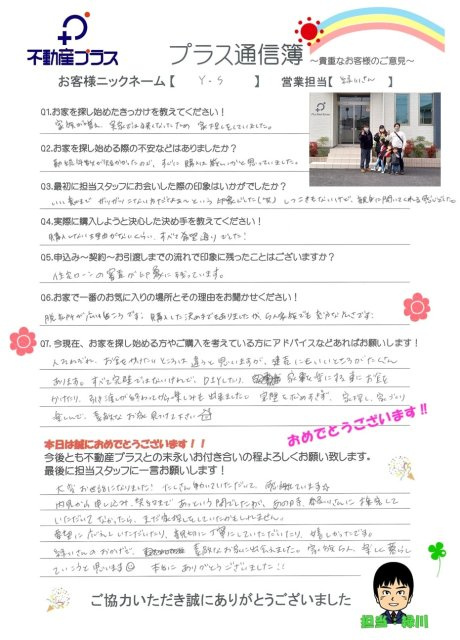 不動産プラス
プラス通信簿 ～貴重なお客様のご意見～
お客様ニックネーム【 Y.S 】 営業担当【 緑川さん 】
Q1.お家を探し始めたきっかけを教えてください！
家族が増え、実家では手狭になったため 家探しをしていました。
Q2.お家を探し始める際の不安などはありましたか？
勤続年数が短かったので、すぐに購入は難しいかと思っていました。
Q3.最初に担当スタッフにお会いした際の印象はいかがでしたか？
いい意味で ガツガツこない
Q4.実際に購入しようと決心した決め手を教えてください！
購入しない理由がないくらい、すべて希望通りでした！
Q5.申込み～契約～お引渡しまでの流れで印象に残ったことはございますか？
住宅ローンの審査が印象に残っています。
Q6.お家で一番のお気に入りの場所とその理由をお聞かせください！
脱衣所が広い所です。購入した決め手でもありましたが、
Q7.今現在、お家を探し始める方やご購入を考えている方にアドバイスなどあればお願いします！
人それぞれ、お金をかけたいところは違うと思いますが、建売にもいいところがたくさん
あります。すべて完璧ではないけれど、DIYしたり、
かけたり、引き渡しが終わってからも楽しみも出来ました。
楽しんで、素敵なお家見つけて下さい
おめでとうございます!!
本日は誠におめでとうございます！！
今後とも不動産プラスとの末永いお付き合いの程よろしくお願い致します。
最後に担当スタッフに一言お願いします！
大変お世話になりました！たくさん動いていただいて、感謝しています
内見から申し込み、契約まであっという間でしたが、あの時、緑川さんに接客して
いただいてなかったら、まだ家探しをしていたかもしれません。
希望に応えていただいたり、親切に丁寧にしていただいたり、嬉しかったです。
緑川さんのおかげで、素敵なお家に出会えました。
ていこうと思います 本当にありがとうございました!!
担当 緑川
ご協力いただき誠にありがとうございました